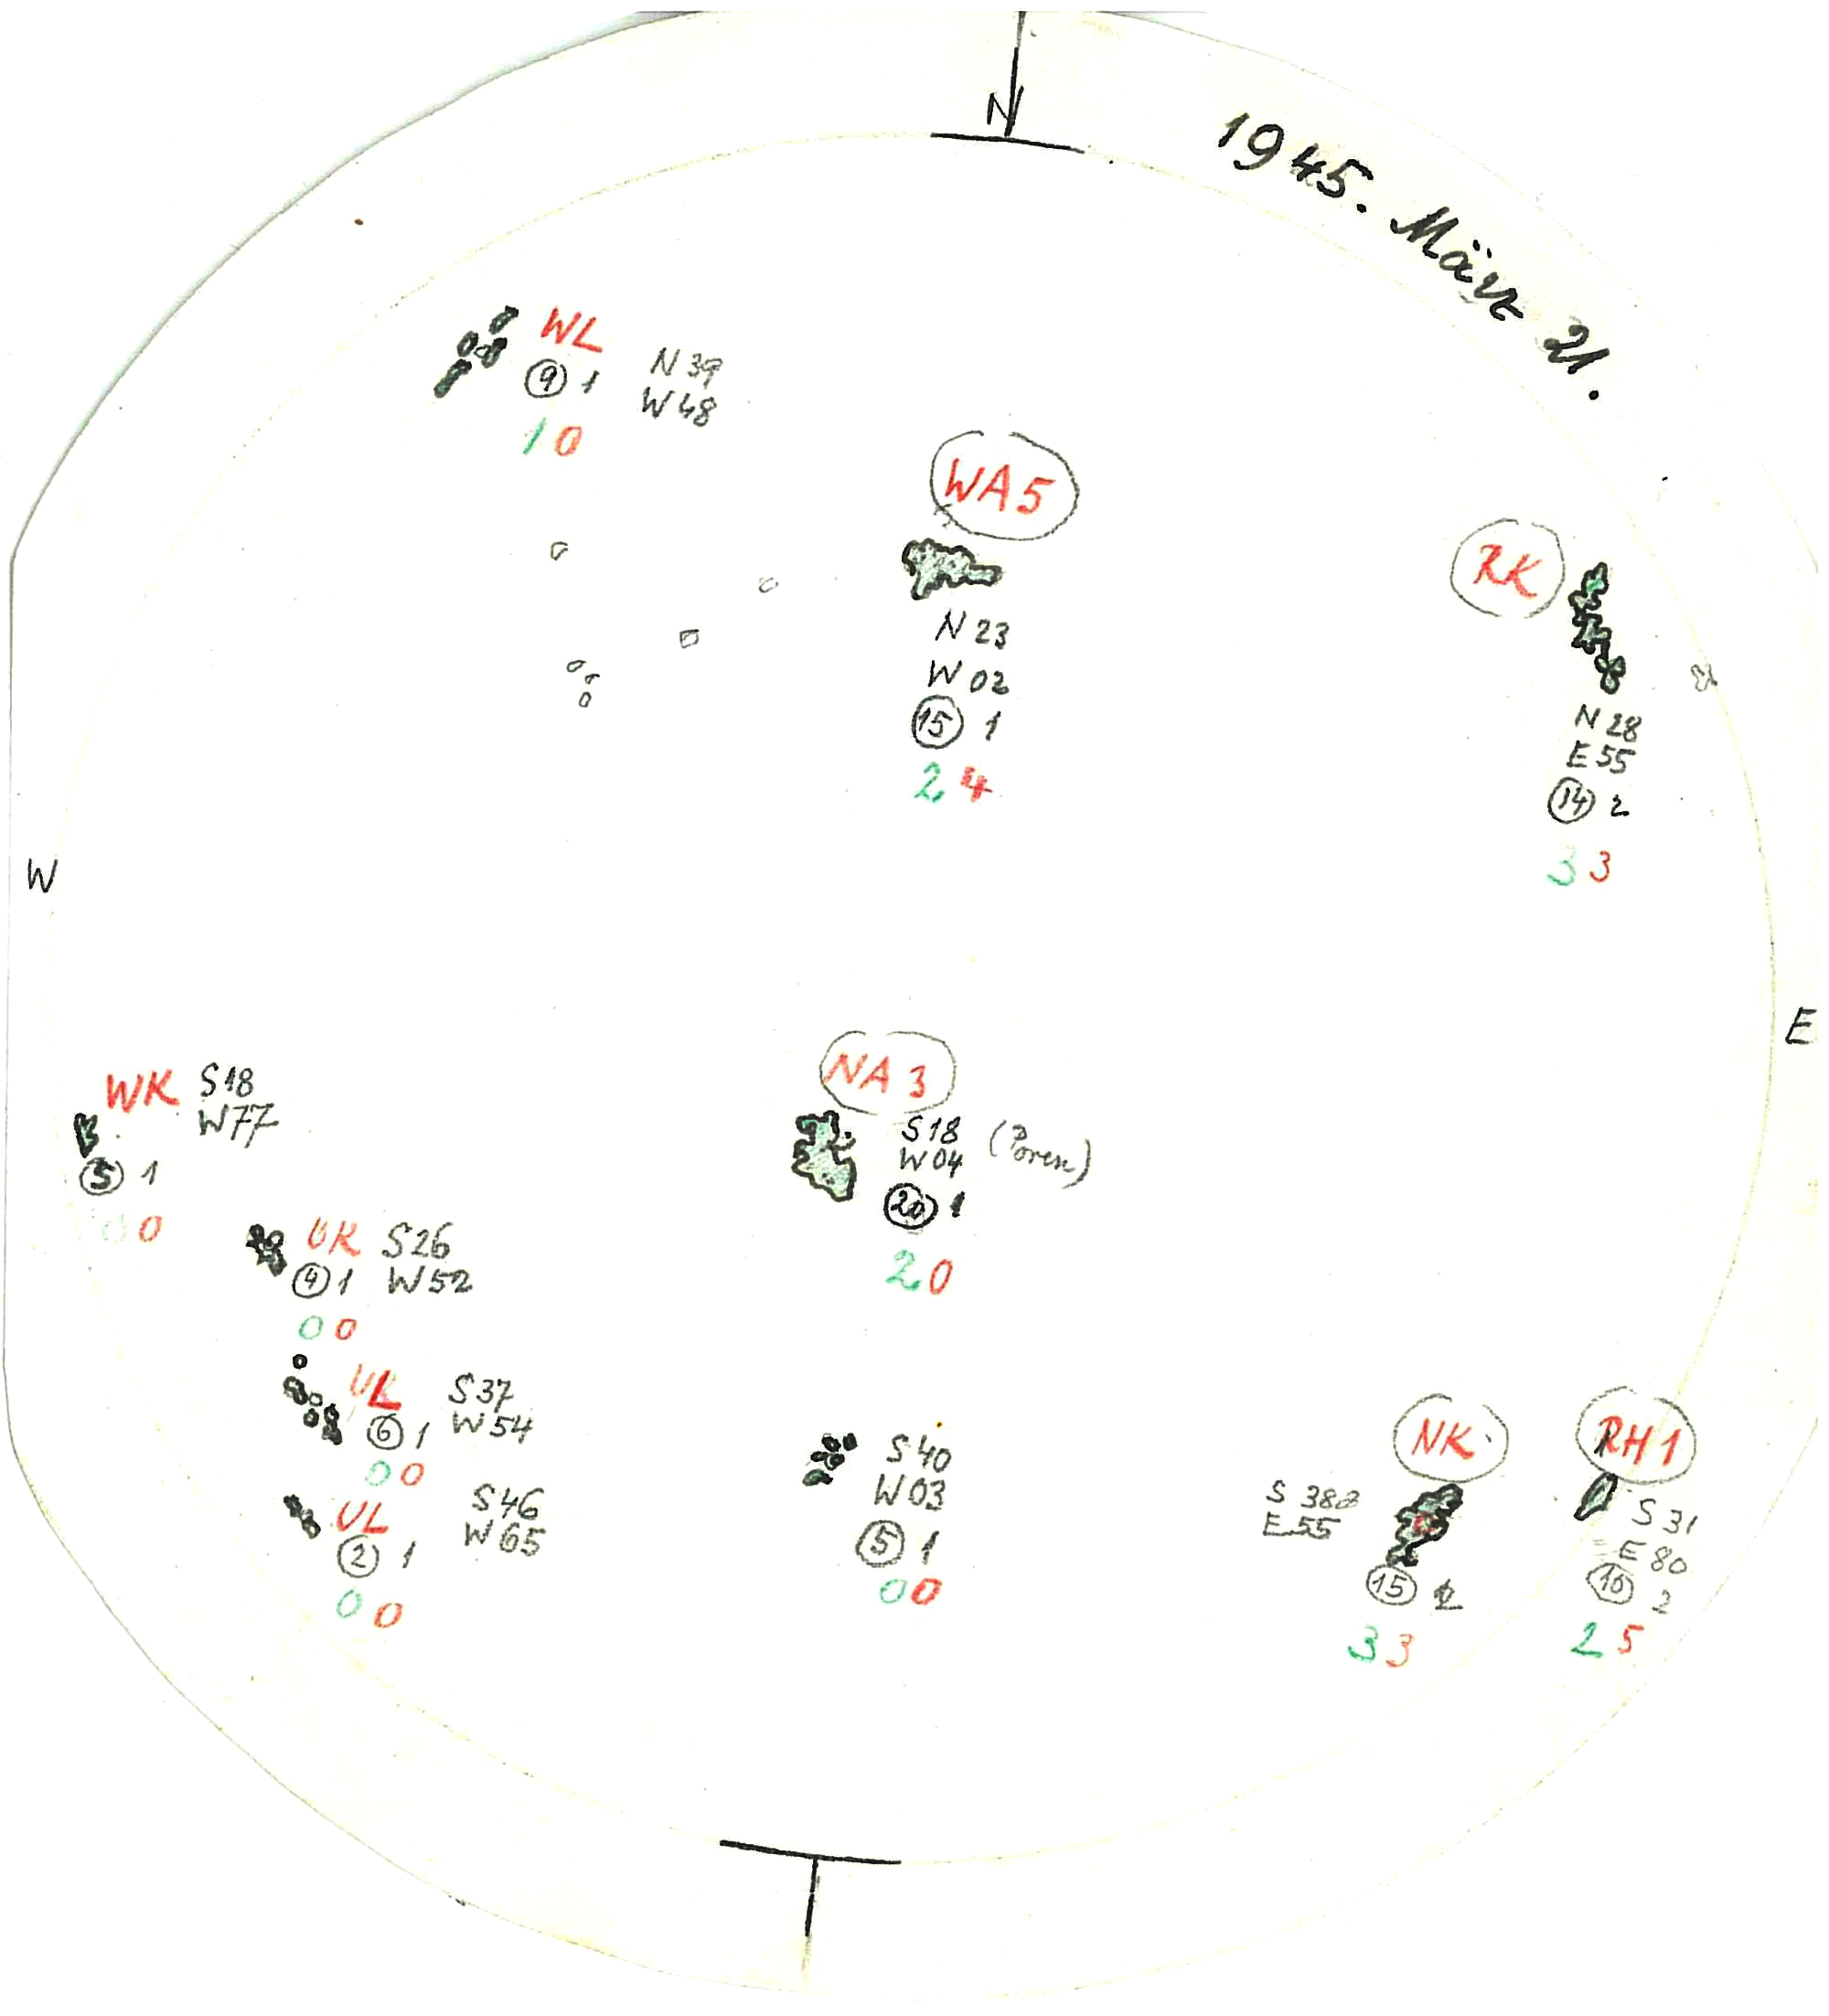 N
1945. März 21.
WL
N 39
⑨ 1
W 48
1 0
WA5
N 23
W 02
⑮ 1
2 4
RK
N 28
E 55
⑭ 2
3 3
W
E
WK
S18
W77
⑤ 1
0 0
NA 3
S18 (Poren)
W04
⑳ 1
2 0
UK
S26
④ 1
W52
0 0
UL
S37
⑥ 1
W54
0 0
UL
S46
② 1
W65
0 0
S40
W03
⑤ 1
0 0
NK
S 38
E 55
⑮
3 3
RH1
S 31
E 80
⑩ 2
2 5